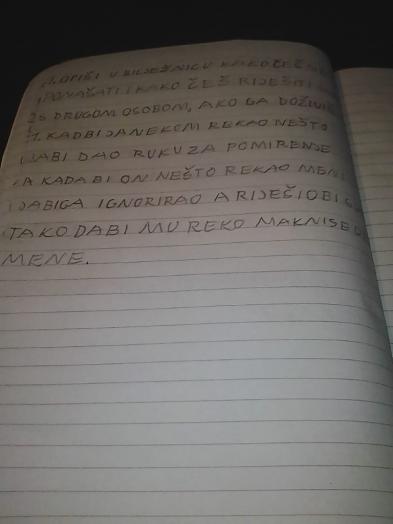 1. OPIŠI U BILJEŽNICU KAKO ČEŠ SE
PONAŠATI I KAKO ČEŠ RIJEŠITI
S DRUGOM OSOBOM, AKO GA DOŽIVIŠ
1. KAD BI JA NEKOM REKAO NEŠTO
JA BI DAO RUKU ZA POMIRENJE
A KADA BI ON NEŠTO REKAO MENI
JA BI GA IGNORIRAO A RIJEŠIO BI
TAKO DA BI MU REKO MAKNI SE
MENE.